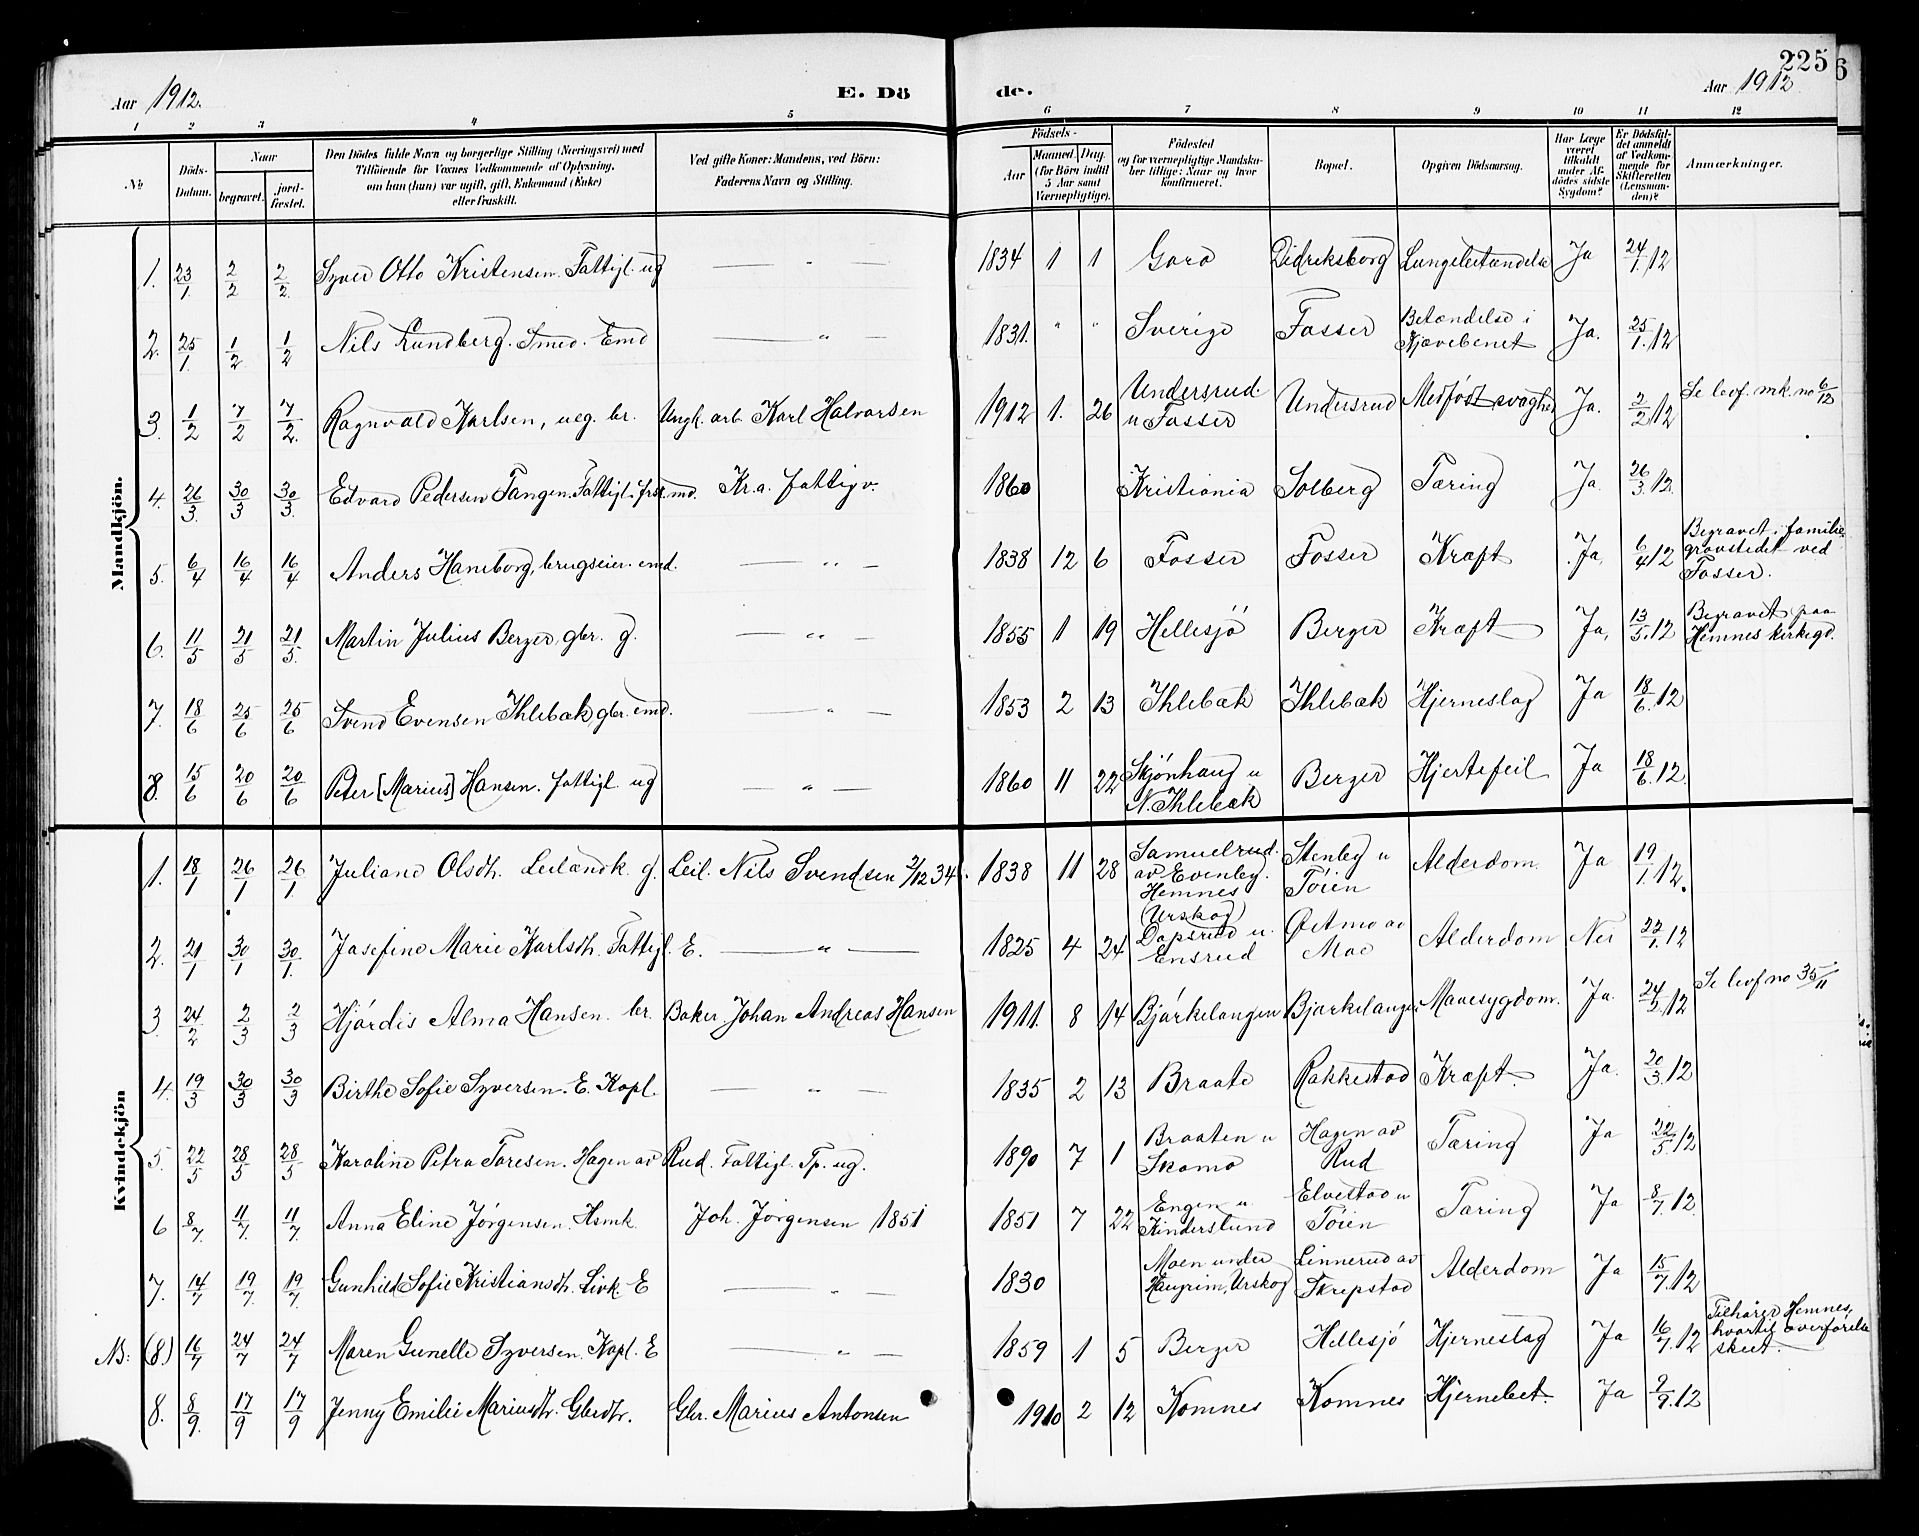 225
6
Aar 1912.
E. Dö
de.
Aar 1912
1 2 3 4 5 6 7 8 9 10 11 12
No
Döds-
Datum.
Naar
begravet.
jord-
fæstet.
Den Dödes fulde Navn og borgerlige Stilling (Næringsvei) med
Tilföiende for Voxnes Vedkommende af Oplysning,
om han (hun) var ugift, gift, Enkemand (Enke)
eller fraskilt.
Ved gifte Koner: Mandens, ved Börn:
Faderens Navn og Stilling.
Födsels-
Aar
Maaned.
Dag.
(for Börn indtil
5 Aar samt
Værnepligtige).
Födested
og for værnepligtige Mandska-
ber tillige: Naar og hvor
konfirmeret.
Bopæl.
Opgiven Dödsaarsag.
Har Læge
været
tilkaldt
under Af-
dödes sidste
Sygdom?
Er Dödsfal-
det anmeldt
af Vedkom-
mende for
Skifteretten
(Lensman-
den)?
Anmærkninger.
Mandkjön.
1. 23/1. 2/2 2/2. Syver Otto Kristensen. Fattigl. ug — " — 1834 1 1 Gara Didreksborg Lungebetændelse Ja 24/1.12
2. 25/1. 1/2 1/2 Nils Lundberg. Smed. Emd — " — 1831. " " Sverige Fosser Betændelse i
Kjævebenet Ja. 25/1.12
3. 1/2 7/2 7/2. Ragnvald Karlsen, ueg. br. Ungk. arb. Karl Halvorsen 1912 1. 26 Undersrud.
u Fosser Undersrud Medfödt svaghed Ja. 2/2.12 Se levf. mk. no 6/12
4. 26/3. 30/3 30/3. Edvard Pedersen Tangen. Fattigl. frsk. md. Kr.a. fattigv. 1860 Kristiania Solberg Tæring Ja. 26/3.12.
5. 6/4 16/4 16/4 Anders Haneborg, brugseier. emd. — " — 1838 12 6 Fosser Fosser Kræft Ja, 6/4 12 Begravet i familie-
gravstedet ved
Fosser.
6. 11/5 21/5 21/5. Martin Julius Berger, gbr. g. — " — 1855 1 19 Hellesjö Berger Kræft Ja, 13/5.12 Begravet paa
Hemnes kirkegd.
7. 18/6 25/6 25/6 Svend Evensen Ihlebæk, gbr. emd. — " — 1853 2 13 Ihlebæk Ihlebæk Hjerneslag Ja 18/6.12
8. 15/6 20/6 20/6 Peter [Marius] Hansen. fattigl. ug — " — 1860 11 22 Skjönhaug u
N. Ihlebæk Berger Hjertefeil Ja 18/6.12.
Kvindekjön
1. 18/1 26/1 26/1 Juliane Olsdh. Leilændk. g. Leil. Nils Svendsen 2/12 34. 1838 11 28 Samuelrud.
av Evenby.
Hemnes Stenby u
Töien Alderdom. Ja 19/1.12.
2. 21/1 30/1 30/1. Josefine Marie Karlsdh. Fattigl. E. — " — 1825 4 24 (Urskog)
Dapsrud u.
Ensrud Östmo av
Mae Alderdom Nei 22/1.12
3 24/2 2/3 2/3 Hjördis Alma Hansen. br. Baker Johan Andreas Hansen 1911. 8 14 Björkelangen Bjørkelangen Mavesygdom. Ja. 24/2.12 Se levf no 35/11
4. 19/3 30/3 30/3 Birthe Sofie Syversen. E. Kapl. — " — 1835 2 13 Braate Rakkestad Kræft. Ja. 20/3.12
5. 22/5 28/5 28/5 Karoline Petra Toresen. Hagen av Rud. Fattigl. Tp. ug. 1890 7 1 Braaten u
Skamo Hagen av
Rud Tæring Ja 22/5.12
6 8/7. 11/7. 11/7. Anna Eline Jörgensen. Hsmk. Joh. Jörgensen 1851 1851 7 22 Engen u
Kinderslund Elvestad u
Töien Tæring Ja 8/7.12.
7. 14/7 19/7. 19/7. Gunhild Sofie Kristiansdh. E — " — 1830 Moen under
Haugrim, Urskog Linnerud av
Skrepstad Alderdom Ja 15/7.12
NB: (8) 16/7 24/7 24/7 Maren Gunelle Syversen. Kapl. E — " — 1859 1 5 Berger Hellesjö Hjerneslag Ja 16/7.12 Tilhörer Hemnes,
hvortil overförelse
skeet.
8. 8/9. 17/9 17/9 Jenny Emilie Mariusdh. Gbrdtr. Gbr. Marius Antonsen 1910 2 12 Komnes Komnes Hjernebet. Ja 9/9.12